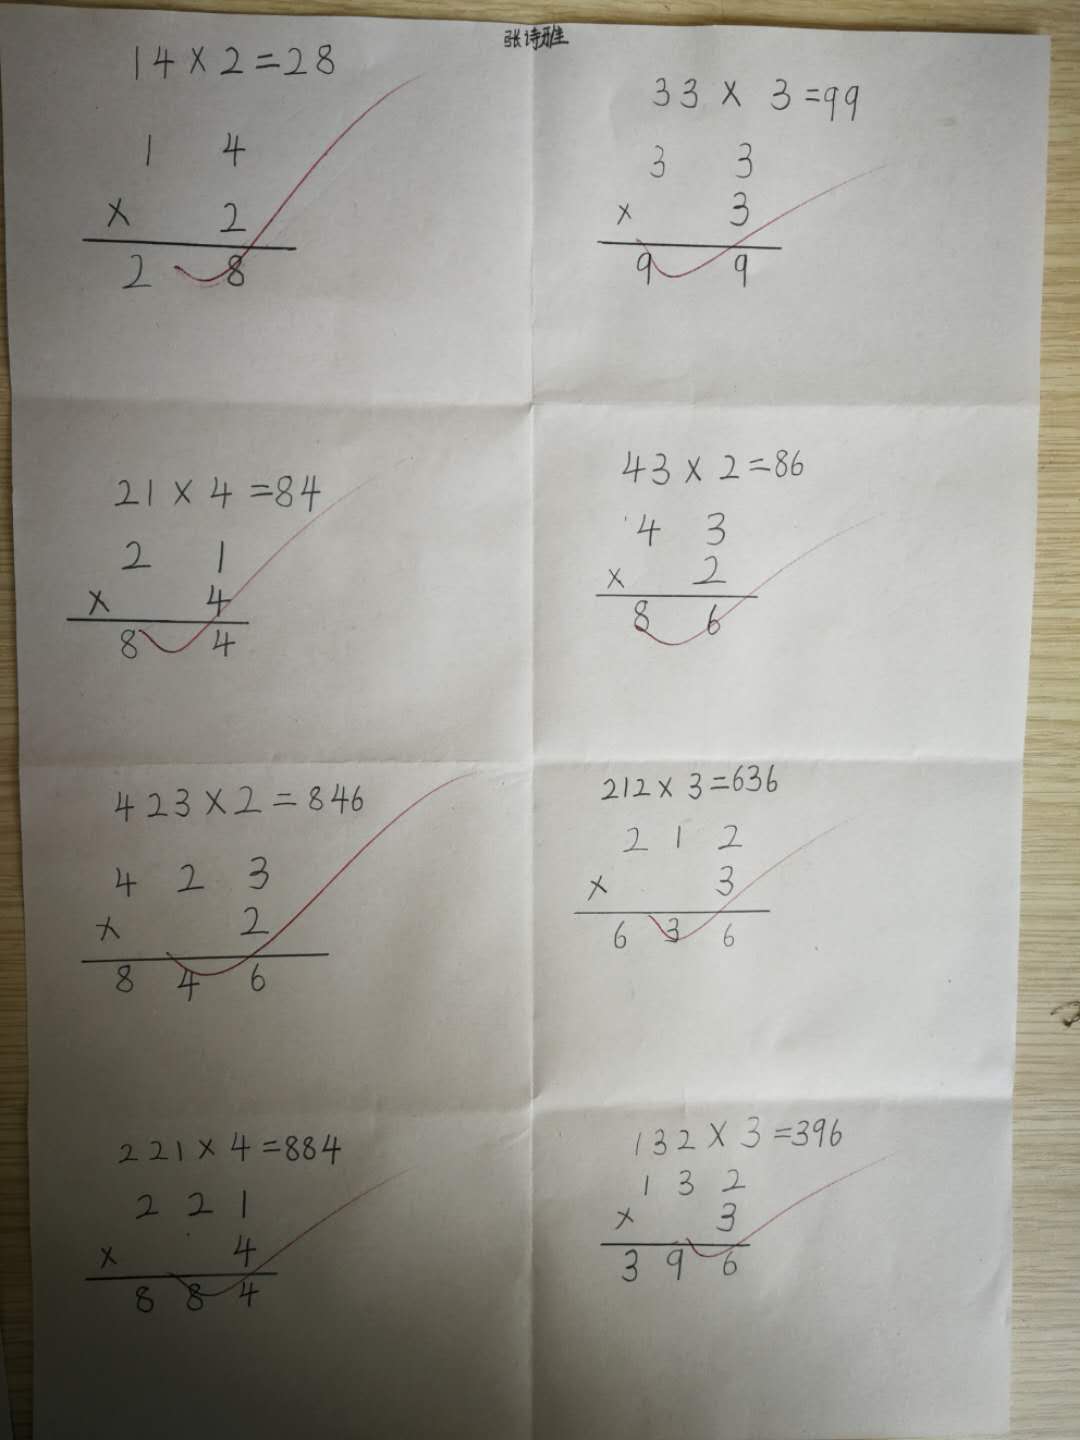 张诗雅
14×2=28
1 4
× 2
2 8
33 × 3=99
3 3
× 3
9 9
21×4=84
2 1
× 4
8 4
43×2=86
4 3
× 2
8 6
423×2=846
4 2 3
× 2
8 4 6
212×3=636
2 1 2
× 3
6 3 6
221×4=884
2 2 1
× 4
8 8 4
132×3=396
1 3 2
× 3
3 9 6